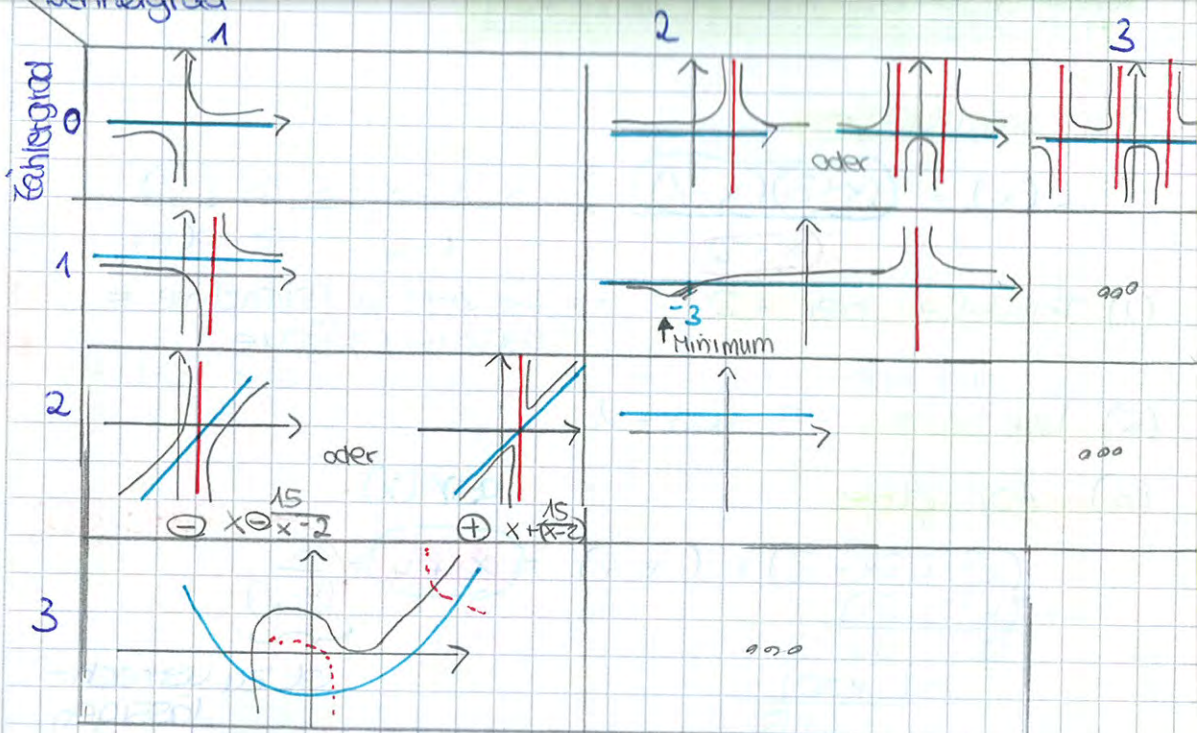 Nennergrad
1 2 3
Zählergrad
0
oder
1
-3
Minimum
ooo
2
oder
⊖ x⊖15/(x-2)
⊕ x+15/(x-2)
ooo
3
ooo